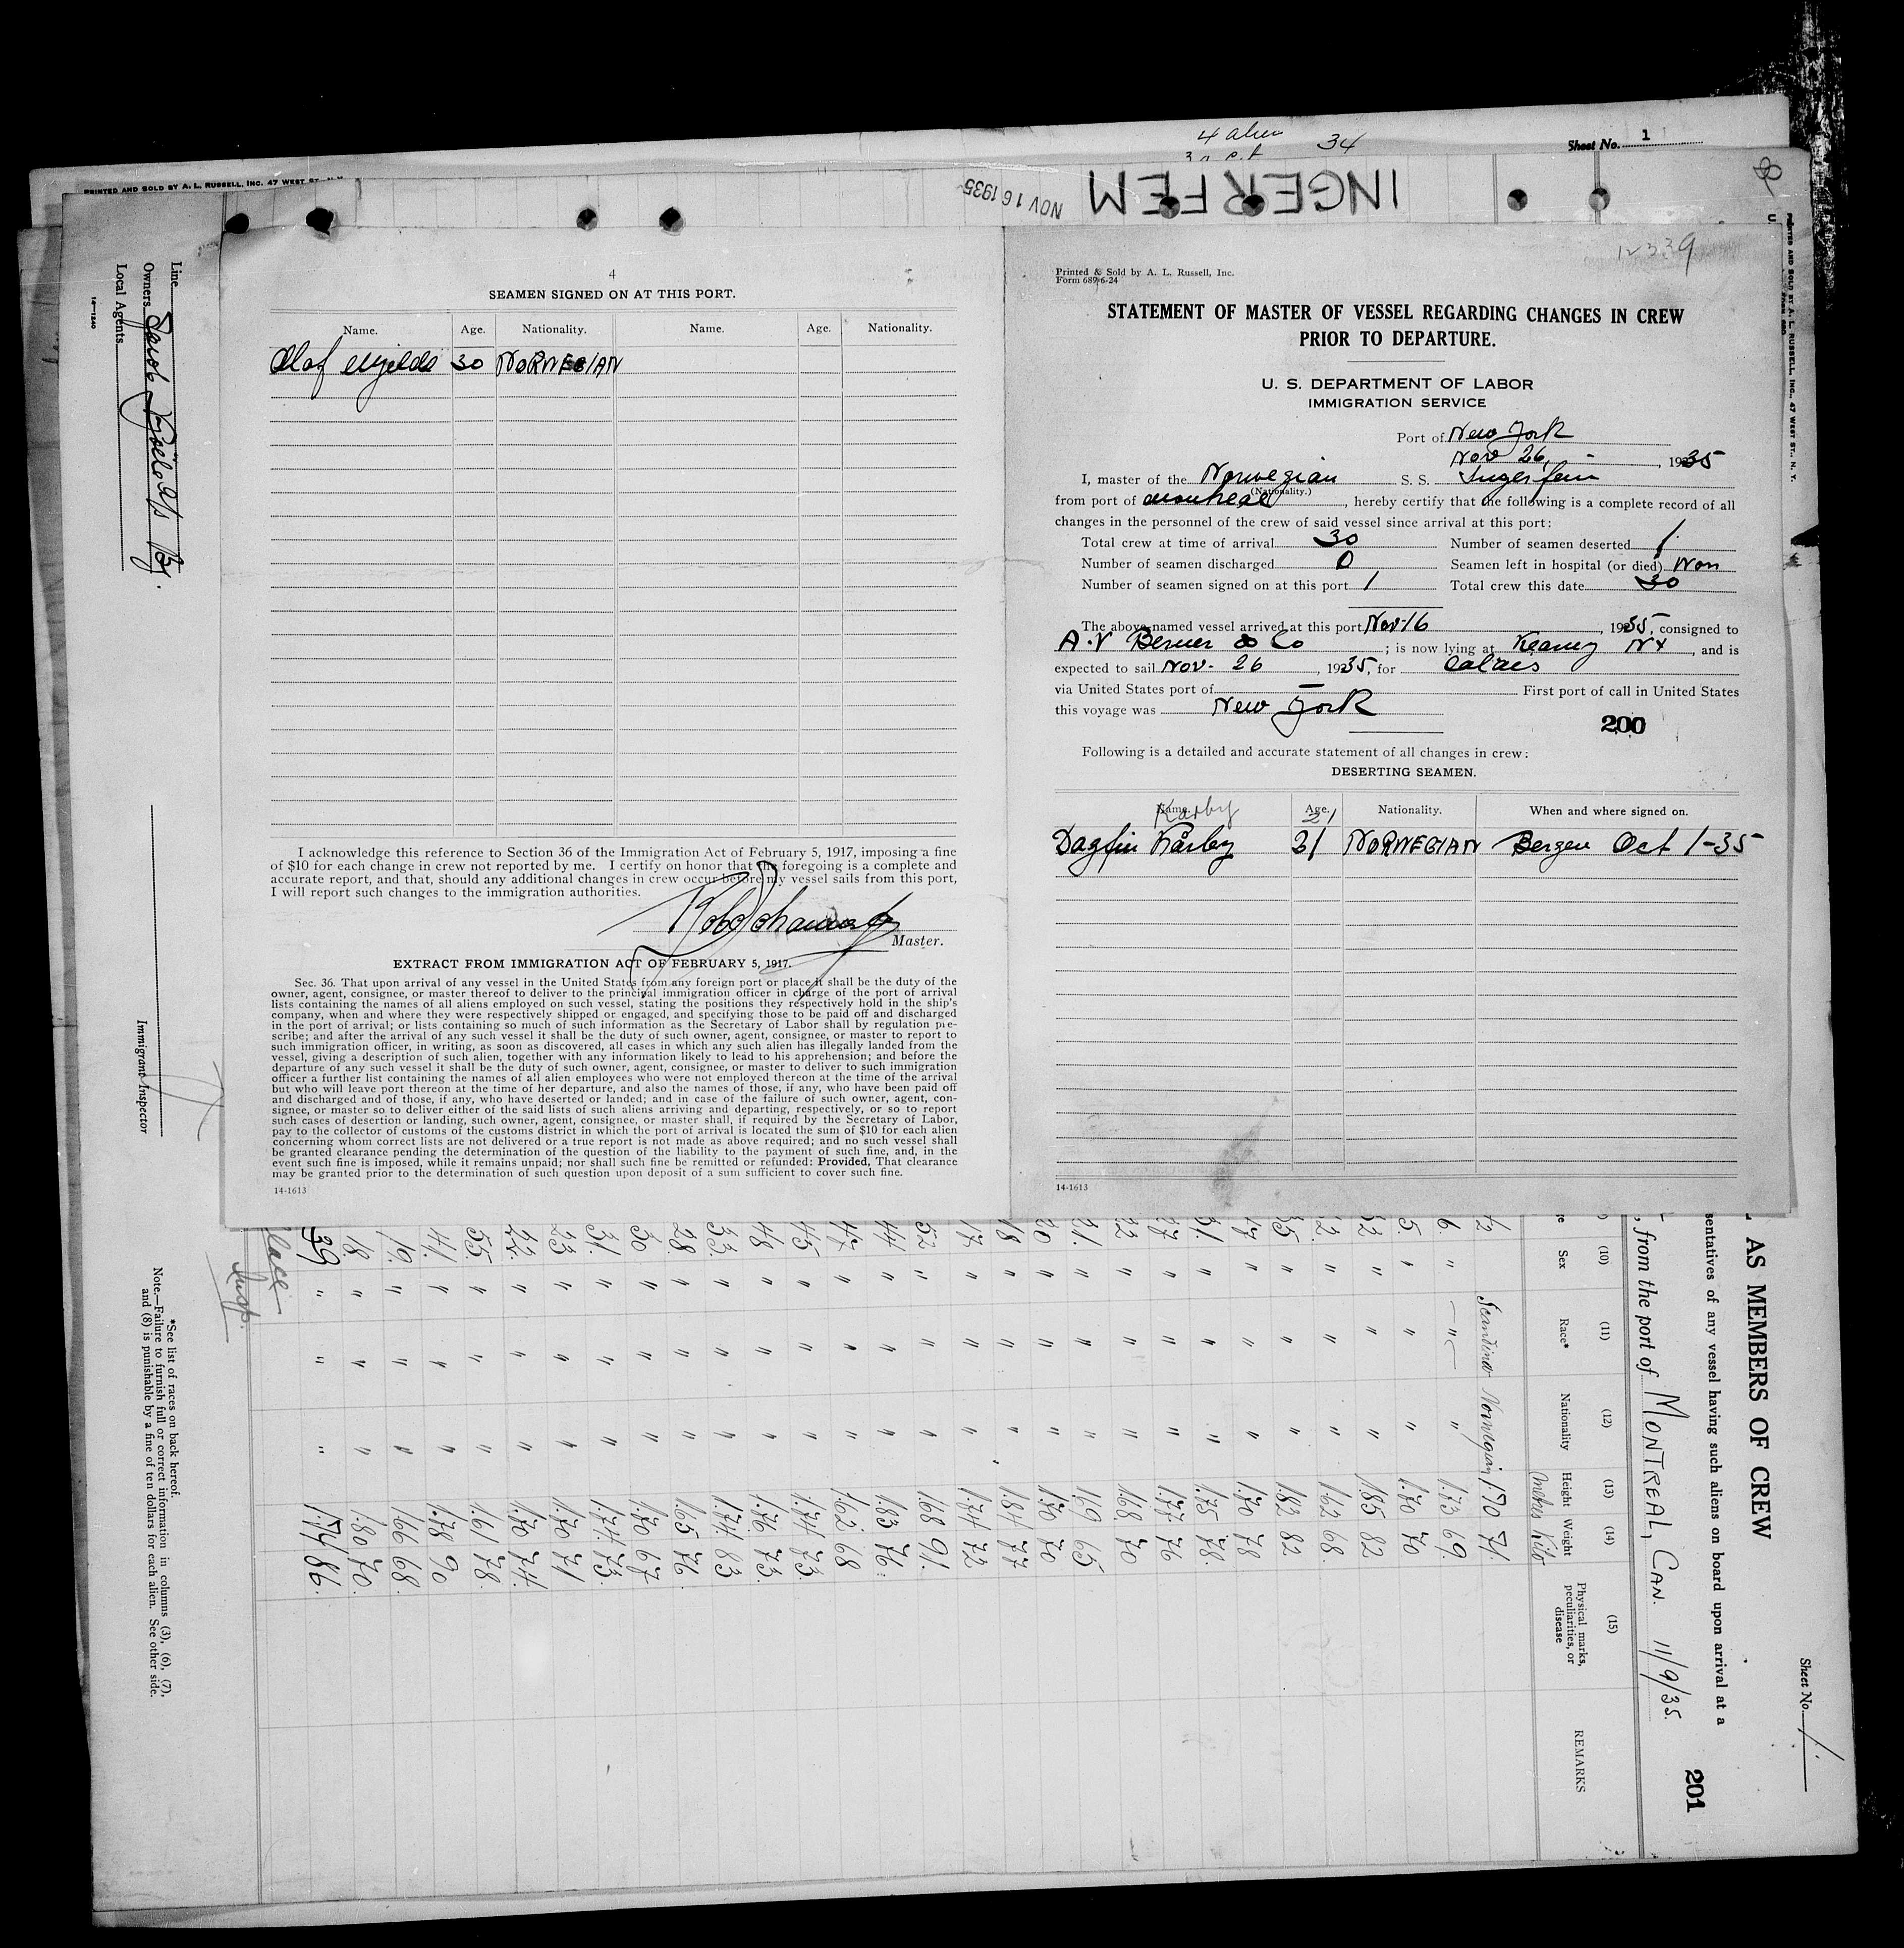 4 alien 34
Sheet No. 1
PRINTED AND SOLD BY A. L. RUSSELL, INC. 47 WEST ST., N. Y.
NOV 16 1935
INGERFEM
12339
Line
Owners Jacob Kjöde A/S Bg.
Local Agents
16-1240
Immigrant Inspector
*See list of races on back hereof.
Note.—Failure to furnish full or correct information in columns (3), (6), (7),
and (8) is punishable by a fine of ten dollars for each alien. See other side.
4
SEAMEN SIGNED ON AT THIS PORT.
Name. Age. Nationality. Name. Age. Nationality.
Olaf Mjelde 30 NORWEGIAN
I acknowledge this reference to Section 36 of the Immigration Act of February 5, 1917, imposing a fine
of $10 for each change in crew not reported by me. I certify on honor that the foregoing is a complete and
accurate report, and that, should any additional changes in crew occur before my vessel sails from this port,
I will report such changes to the immigration authorities.
Master.
EXTRACT FROM IMMIGRATION ACT OF FEBRUARY 5, 1917.
Sec. 36. That upon arrival of any vessel in the United States from any foreign port or place it shall be the duty of the
owner, agent, consignee, or master thereof to deliver to the principal immigration officer in charge of the port of arrival
lists containing the names of all aliens employed on such vessel, stating the positions they respectively hold in the ship's
company, when and where they were respectively shipped or engaged, and specifying those to be paid off and discharged
in the port of arrival; or lists containing so much of such information as the Secretary of Labor shall by regulation pre-
scribe; and after the arrival of any such vessel it shall be the duty of such owner, agent, consignee, or master to report to
such immigration officer, in writing, as soon as discovered, all cases in which any such alien has illegally landed from the
vessel, giving a description of such alien, together with any information likely to lead to his apprehension; and before the
departure of any such vessel it shall be the duty of such owner, agent, consignee, or master to deliver to such immigration
officer a further list containing the names of all alien employees who were not employed thereon at the time of the arrival
but who will leave port thereon at the time of her departure, and also the names of those, if any, who have been paid off
and discharged and of those, if any, who have deserted or landed; and in case of the failure of such owner, agent, con-
signee, or master so to deliver either of the said lists of such aliens arriving and departing, respectively, or so to report
such cases of desertion or landing, such owner, agent, consignee, or master shall, if required by the Secretary of Labor,
pay to the collector of customs of the customs district in which the port of arrival is located the sum of $10 for each alien
concerning whom correct lists are not delivered or a true report is not made as above required; and no such vessel shall
be granted clearance pending the determination of the question of the liability to the payment of such fine, and, in the
event such fine is imposed, while it remains unpaid; nor shall such fine be remitted or refunded: Provided, That clearance
may be granted prior to the determination of such question upon deposit of a sum sufficient to cover such fine.
14-1613
Printed & Sold by A. L. Russell, Inc.
Form 689 6-24
STATEMENT OF MASTER OF VESSEL REGARDING CHANGES IN CREW
PRIOR TO DEPARTURE.
U. S. DEPARTMENT OF LABOR
IMMIGRATION SERVICE
Port of New York
Nov 26, 1935
I, master of the Norwegian S. S. Ingerfem
(Nationality.)
from port of Montreal, hereby certify that the following is a complete record of all
changes in the personnel of the crew of said vessel since arrival at this port:
Total crew at time of arrival 30 Number of seamen deserted 1
Number of seamen discharged 0 Seamen left in hospital (or died) Non
Number of seamen signed on at this port 1 Total crew this date 30
The above-named vessel arrived at this port Nov-16, 1935, consigned to
A.V Berner & Co; is now lying at Kearny NY, and is
expected to sail Nov- 26, 1935, for Calais
via United States port of — First port of call in United States
this voyage was New York
200
Following is a detailed and accurate statement of all changes in crew:
DESERTING SEAMEN.
Name. Age. Nationality. When and where signed on.
Karby 21
Dagfin Kårby 21 NORWEGIAN Bergen Oct 1-35
14-1613
Sheet No. 1
AS MEMBERS OF CREW
sentatives of any vessel having such aliens on board upon arrival at a
201
, from the port of MONTREAL, CAN. 11/9/35.
(10) (11) (12) (13) (14) (15)
Sex Race* Nationality Height Weight Physical marks, peculiarities, or disease REMARKS
Meters Kilo
Scandinav Norwegian 1.70 71.
6. " " " 1.73 69.
5. " " " 1.70 70
32 " " " 1.85 82
22. " " " 1.62 68.
35 " " " 1.82 82
47 " " " 1.70 78
31. " " " 1.75 78.
27 " " " 1.77 76
22. " " " 1.68 70
21. " " " 1.69 65
20 " " " 1.70 70
18 " " " 1.84 77
17 " " " 1.74 72
52 " " " 1.68 91.
44 " " " 1.83 76.
47 " " " 1.62 68
45 " " " 1.74 73.
48 " " " 1.76. 73.
53. " " " 1.74 83
28. " " " 1.65 76.
30 " " " 1.70 67
31. " " " 1.74 73
23 " " " 1.70 71
22 " " " 1.70 74.
55 " " " 1.61 78.
41. " " " 1.78 90
19. " " " 1.66 68.
18. " " " 1.80 70.
39 " " " 1.74 86.
Insp.